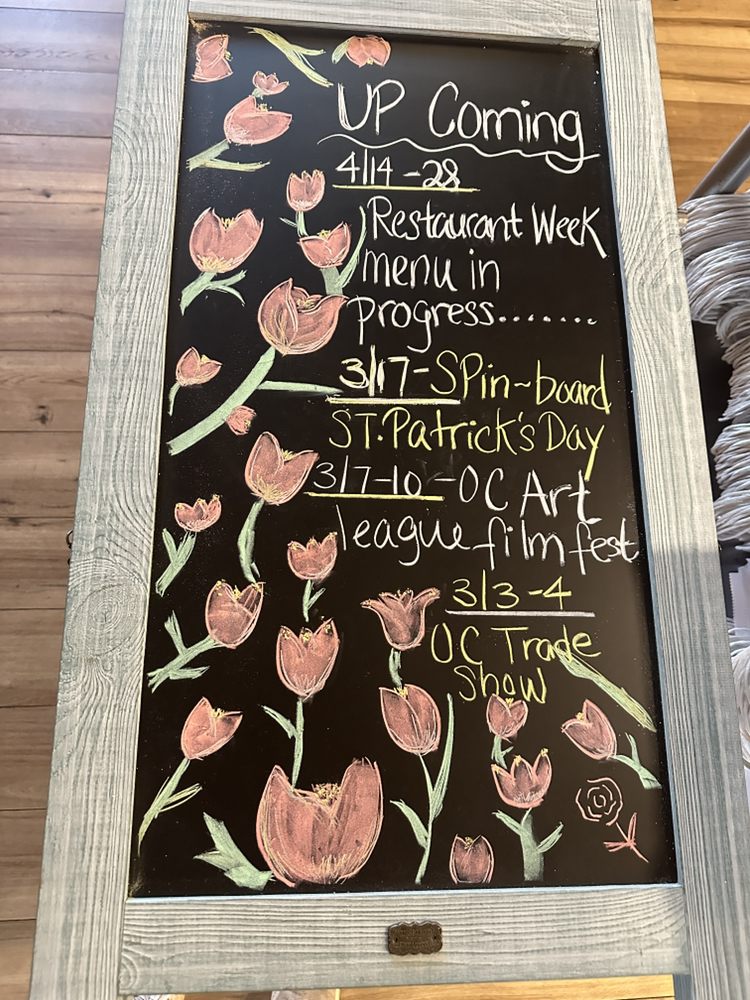 UP Coming
4/14-28
Restaurant Week
menu in
progress.......
3/17-SPin~board
ST.Patrick's Day
3/7-10-OC Art
league film fest
3/3-4
OC Trade
Show